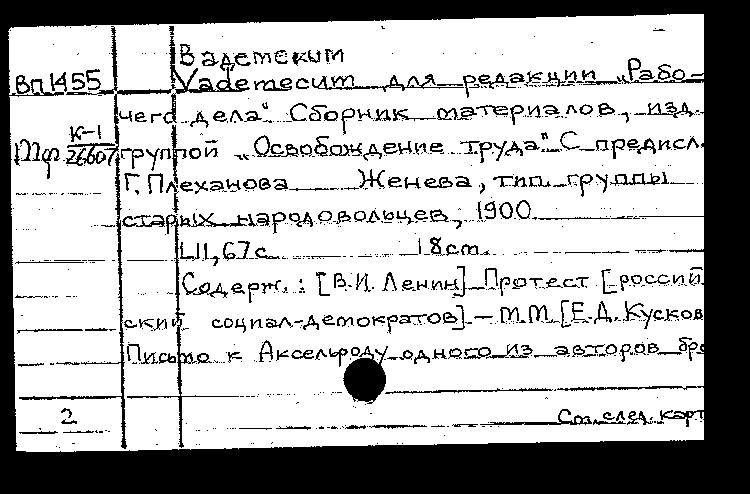 Вадемекум
Вп1455 Vademecum для редакции „Рабо-
чего дела". Сборник материалов, изд.
К-1
Мф 26607 группой „Освобождение труда". С предисл.
Г. Плеханова Женева, тип. группы
старых народовольцев, 1900
LII, 67 с. 18 cm.
Содерж.: [В.И. Ленин] Протест [россий
ский социал-демократов] – М.М. [Е.Д. Кусков
Письмо к Аксельроду одного из авторов бро
2 См. след. карт